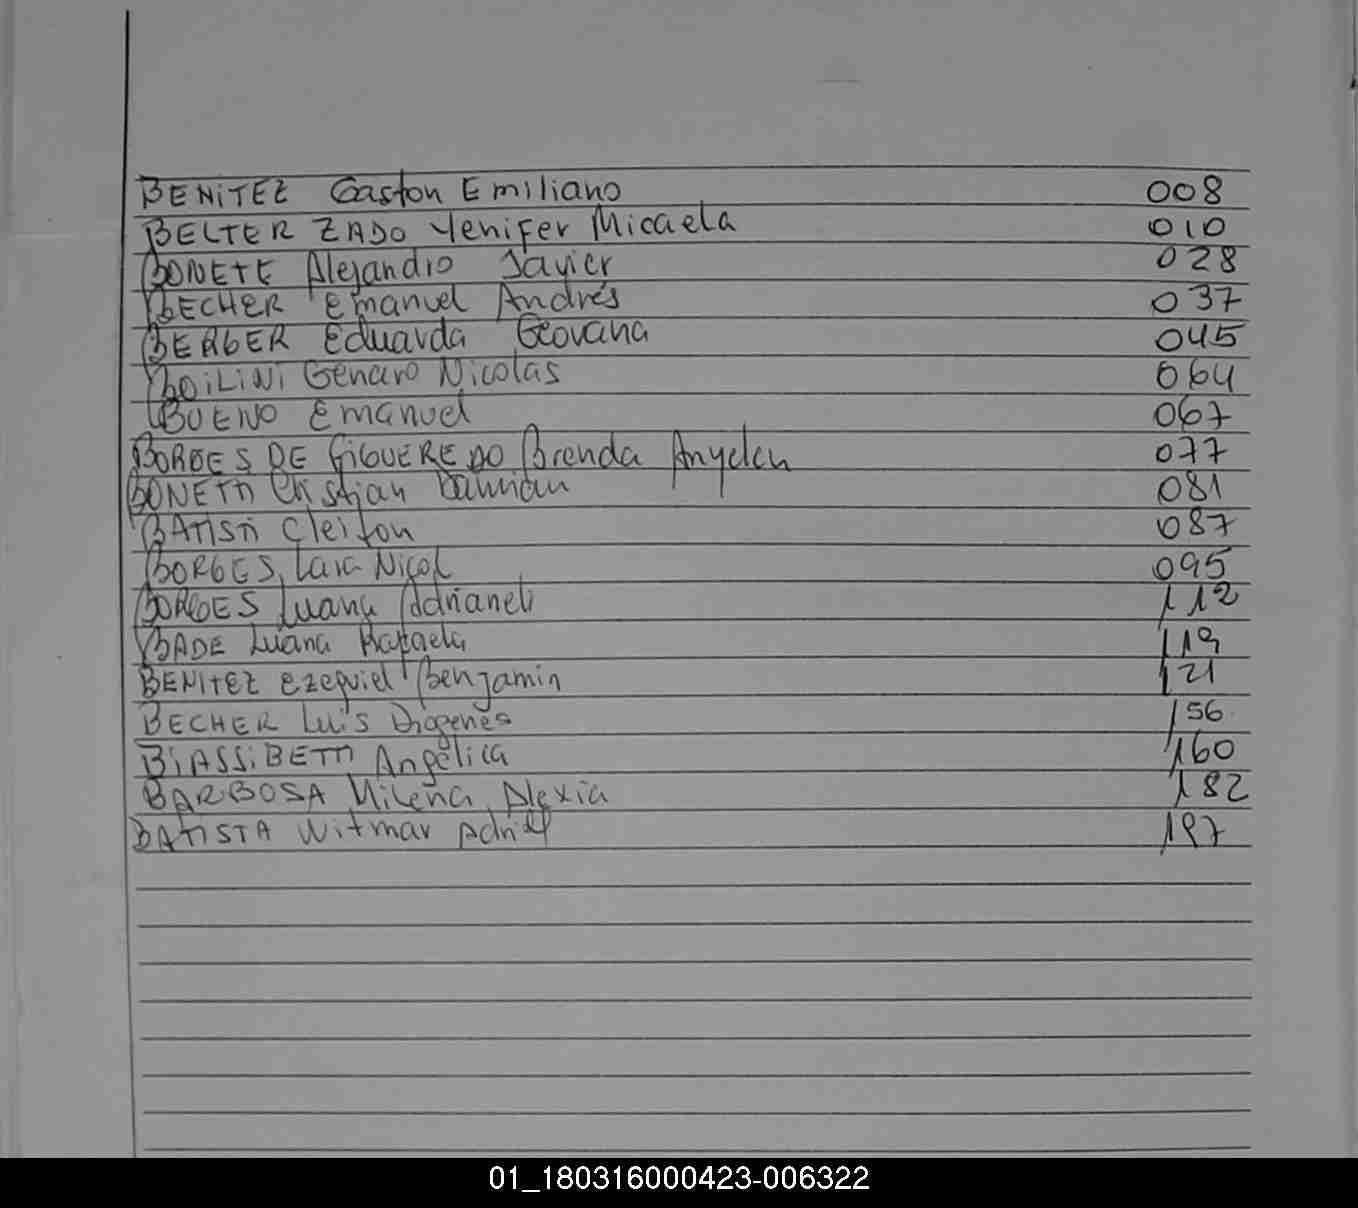 BENITEZ Gaston Emiliano 008
BELTER ZADO Yenifer Micaela 010
BONETE Alejandro Javier 028
BECHER Emanuel Andrés 037
BERGER Eduarda Geovana 045
BOILINI Genaro Nicolas 064
BUENO Emanuel 067
BORGES DE FIGUEREDO Brenda Anyelen 077
BONETTI Cristian Damian 081
BATISTI Cleiton 087
BORGES, Lara Nicol 095
BORGES Luana Adrianeli 112
BADE Luana Rafaela 119
BENITEZ Ezequiel Benjamin 121
BECHER Luis Diogenes 156
BIASSIBETTI Angélica 160
BARBOSA Milena Alexia 182
BATISTA Witmar 197
01_180316000423-006322